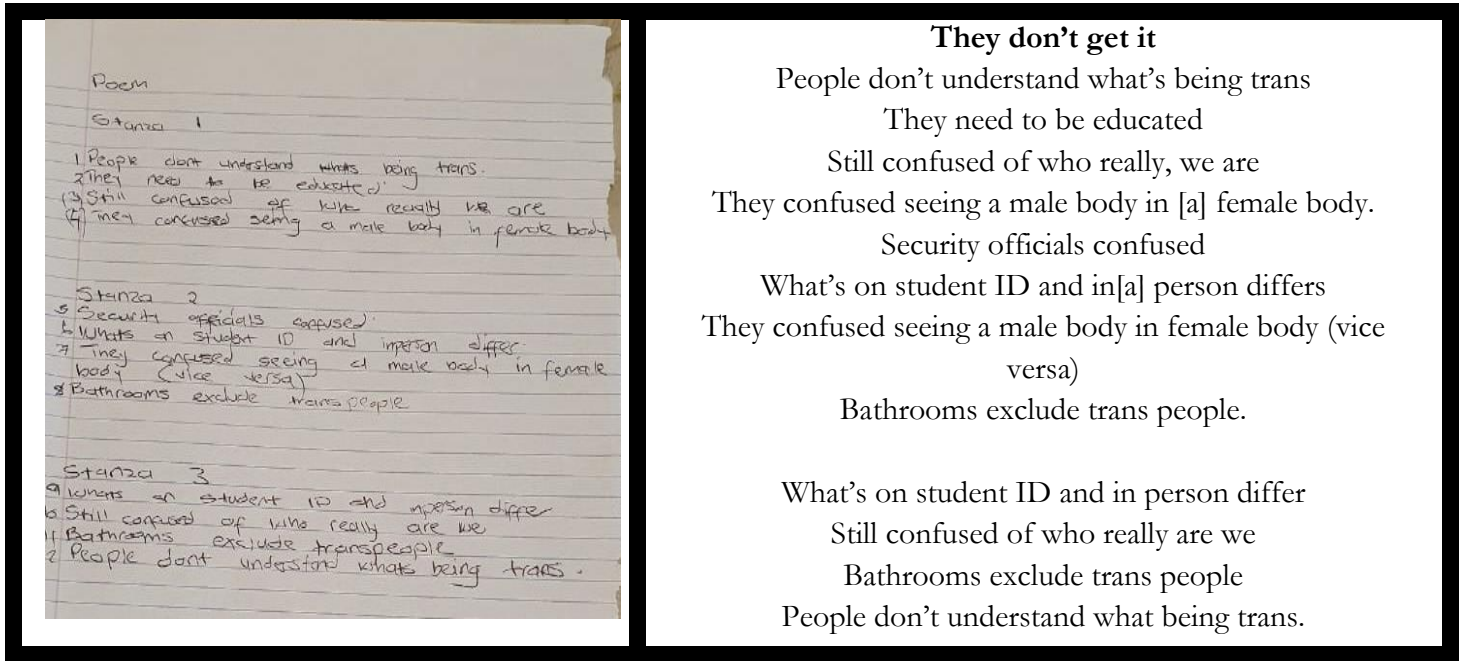 Poem
Stanza 1
1 People dont understand whats being trans.
2 They need to be educated.
(3) Still confused of who really we are
(4) They confused seing a male body in female body
Stanza 2
5 Security officials confused.
6 Whats on student ID and inperson differ.
7 They confused seeing a male body in female
body (vice versa)
8 Bathrooms exclude transpeople
Stanza 3
9 Whats on student ID and inperson differ
10 Still confused of who really are we
11 Bathrooms exclude transpeople
12 People dont understand whats being trans.
They don’t get it
People don’t understand what’s being trans
They need to be educated
Still confused of who really, we are
They confused seeing a male body in [a] female body.
Security officials confused
What’s on student ID and in[a] person differs
They confused seeing a male body in female body (vice
versa)
Bathrooms exclude trans people.
What’s on student ID and in person differ
Still confused of who really are we
Bathrooms exclude trans people
People don’t understand what being trans.